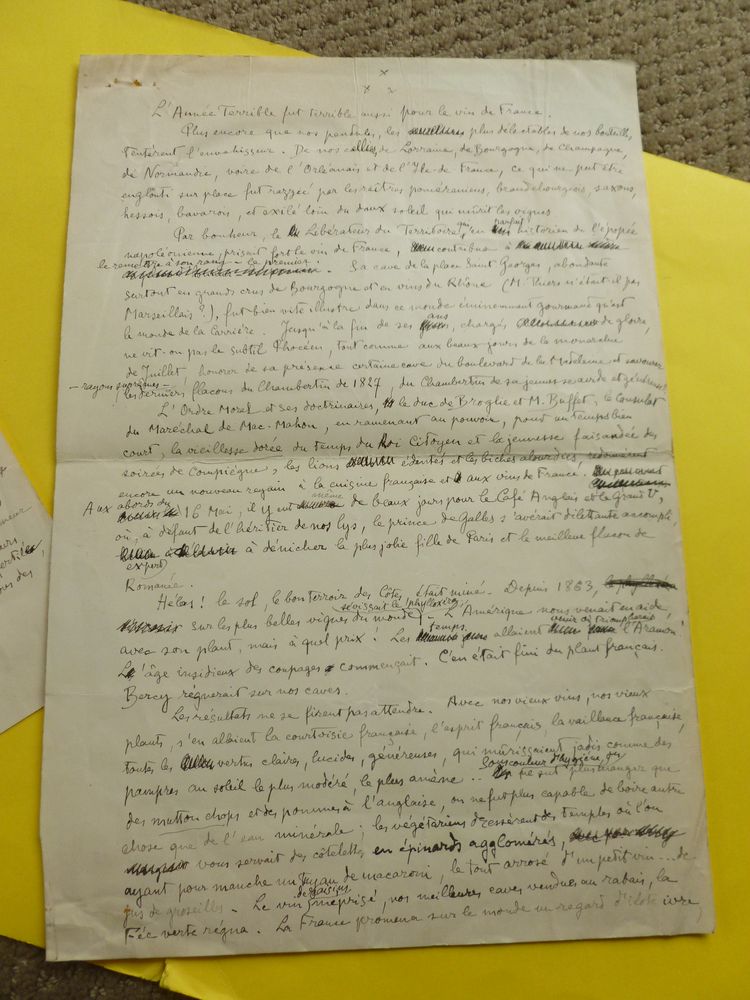 x
x  x
L'Année Terrible fut terrible aussi pour le vin de France.
Plus encore que nos pendules, les plus délectables de nos bouteilles,
tentèrent l'envahisseur. De nos celliers de Lorraine, de Bourgogne, de Champagne,
de Normandie, voire de l'Orléanais et de l'Ile de France, ce qui ne put être
englouti sur place fut razzié par les reîtres poméraniens, brandebourgeois, saxons,
hessois, bavarois, et exilé loin du doux soleil qui mûrit les vignes
Par bonheur, le Libérateur du Territoire, qui, en parfait historien de l'épopée
napoléonienne, prisant fort le vin de France, contribua à
le remettre à son rang - le premier. Sa cave de la place Saint Georges, abondante
surtout en grands crus de Bourgogne et en vins du Rhône (M. Thiers n'était-il pas
Marseillais?), fut bien vite illustre dans ce monde éminemment gourmand qu'est
le monde de la Carrière. Jusqu'à la fin de ses ans, chargés de gloire,
ne vit-on pas le subtil Phocéen, tout comme aux beaux jours de la monarchie
de Juillet honorer de sa présence certaine cave du boulevard de la Madeleine et savourer
- rayons suprêmes - les derniers flacons du Chambertin de 1827, du Chambertin de sa jeunesse ardente et généreuse!
L'Ordre Moral et ses doctrinaires, le duc de Broglie et M. Buffet, le Consulat
du Maréchal de Mac-Mahon, en ramenant au pouvoir, pour un temps bien
court, la vieillesse dorée du temps du Roi Citoyen et la jeunesse faisandée des
soirées de Compiègne, les lions édentés et les biches alourdies redonnèrent
encore un nouveau regain à la cuisine française et aux vins de France.
Aux abords du 16 Mai, il y eut même de beaux jours pour le Café Anglais et le grand V,
où, à défaut de l'héritier de nos lys, le prince de Galles s'avérait dilettante accompli
expert à dénicher la plus jolie fille de Paris et le meilleur flacon de
Romanée.
Hélas! le sol, le bon terroir des Côtes était miné. Depuis 1863,
sévissait le phylloxéra sur les plus belles vignes du monde. L'Amérique nous venait en aide
avec son plant, mais à quel prix! Les temps allaient venir du triomphant l'Aramon
L'âge insidieux des coupages commençait. C'en était fini du plant français.
Bercy régnerait sur nos caves.
Les résultats ne se firent pas attendre. Avec nos vieux vins, nos vieux
plants, s'en allaient la courtoisie française, l'esprit français, la vaillance française,
toutes les vertus claires, lucides, généreuses, qui mûrissaient jadis comme des
pampres au soleil le plus modéré, le plus amène... Sous couleur d'hygiène, on ne sut plus manger que
des mutton chops et des pommes à l'anglaise, on ne fut plus capable de boire autre
chose que de l'eau minérale; les végétariens dressèrent des temples où l'on
vous servait des côtelettes en épinards agglomérés,
ayant pour manche un tuyau de macaroni, le tout arrosé d'un petit vin... de
jus de groseilles. Le vin méprisé, nos meilleures caves vendues au rabais, la
Fée verte régna. La France promena sur le monde un regard d'ilote ivre,